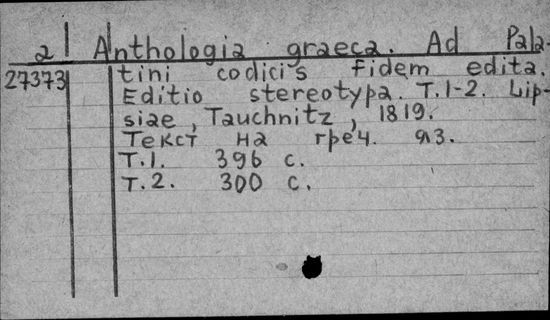 2 Anthologia graeca. Ad Pala-
27373 tini codicis fidem edita.
Editio stereotypa. T.1-2. Lip-
siae, Tauchnitz, 1819.
Текст на греч. яз.
Т.1. 396 с.
Т.2. 300 с.